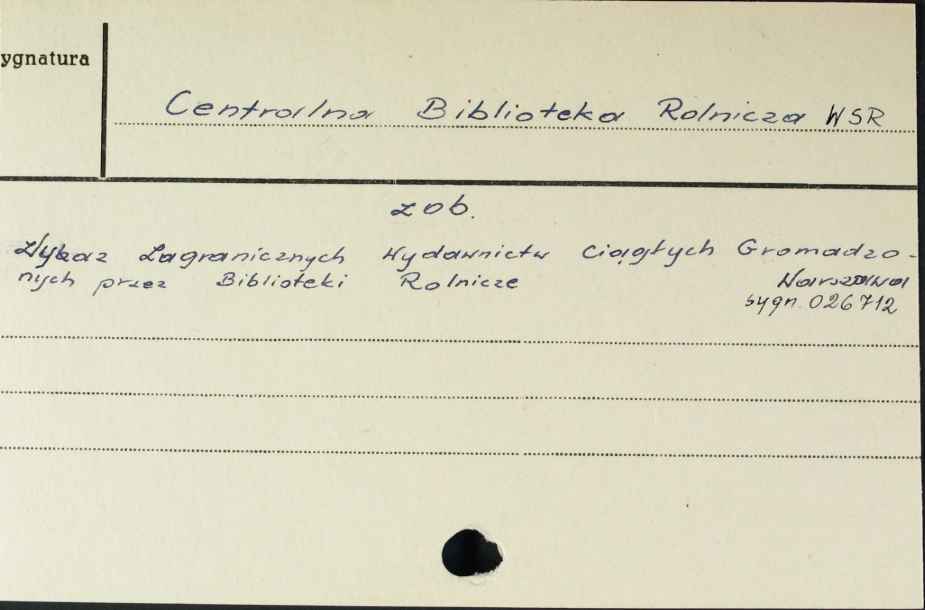 ygnatura
Centralna Biblioteka Rolnicza WSR
zob.
Wykaz Zagranicznych Wydawnictw Ciągłych Gromadzo-
nych przez Biblioteki Rolnicze Warszawa
sygn. 026712